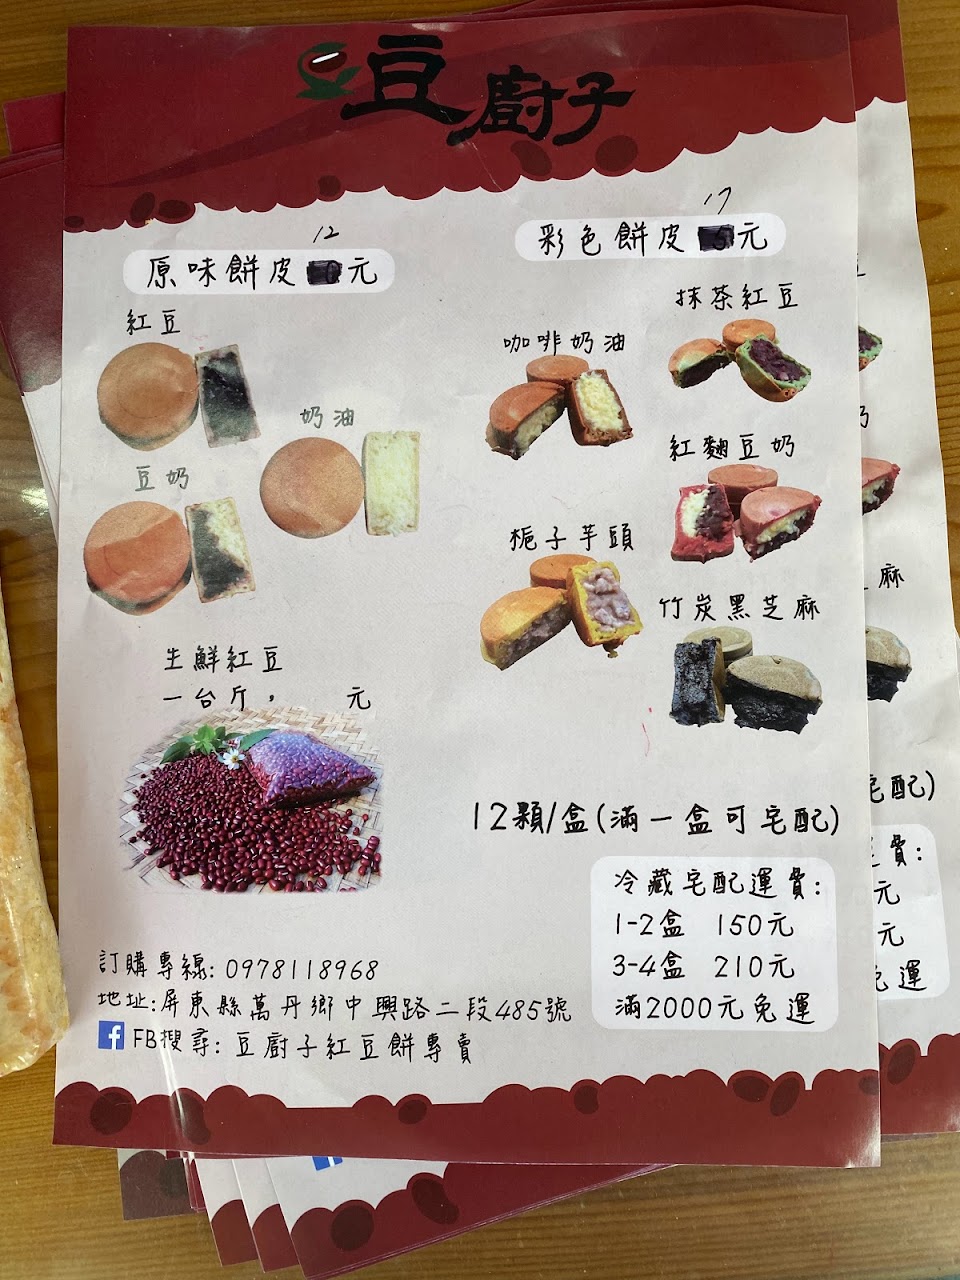 豆廚子
12
原味餅皮 元
紅豆
奶油
豆奶
生鮮紅豆
一台斤, 元
17
彩色餅皮 元
抹茶紅豆
咖啡奶油
紅麴豆奶
梔子芋頭
竹炭黑芝麻
12顆/盒(滿一盒可宅配)
冷藏宅配運費:
1-2盒 150元
3-4盒 210元
滿2000元免運
訂購專線: 0978118968
地址:屏東縣萬丹鄉中興路二段485號
f FB搜尋: 豆廚子紅豆餅專賣
奶
麻
宅配)
費:
元
元
免運